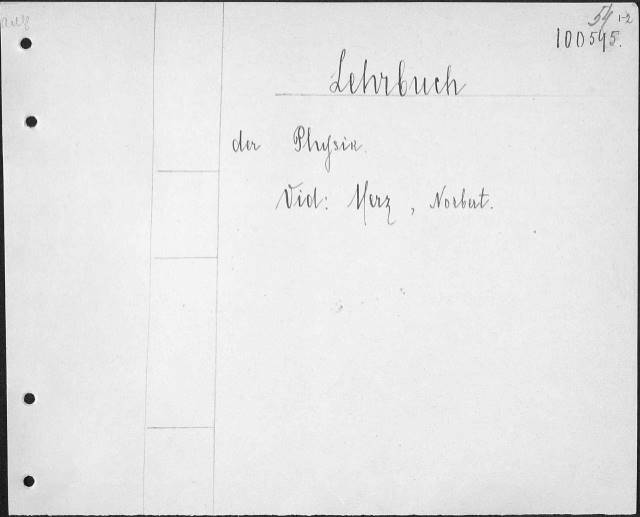 54 1-2
100545.
Lehrbuch
der Physik.
Vid: Merz, Norbert.